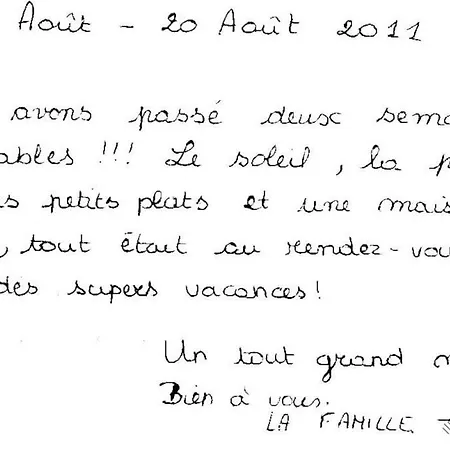 Août - 20 Août 2011
avons passé deux sema
ables !!! Le soleil, la p
s petits plats et une mais
, tout était au rendez-vou
des supers vacances!
Un tout grand m
Bien à vous.
LA FAMILLE